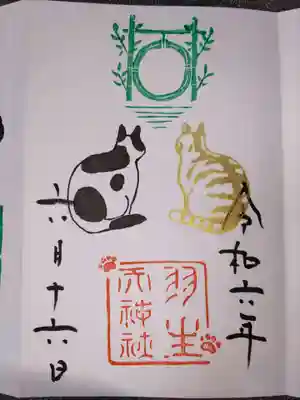 令和六年
羽生
天神社
六月十六日